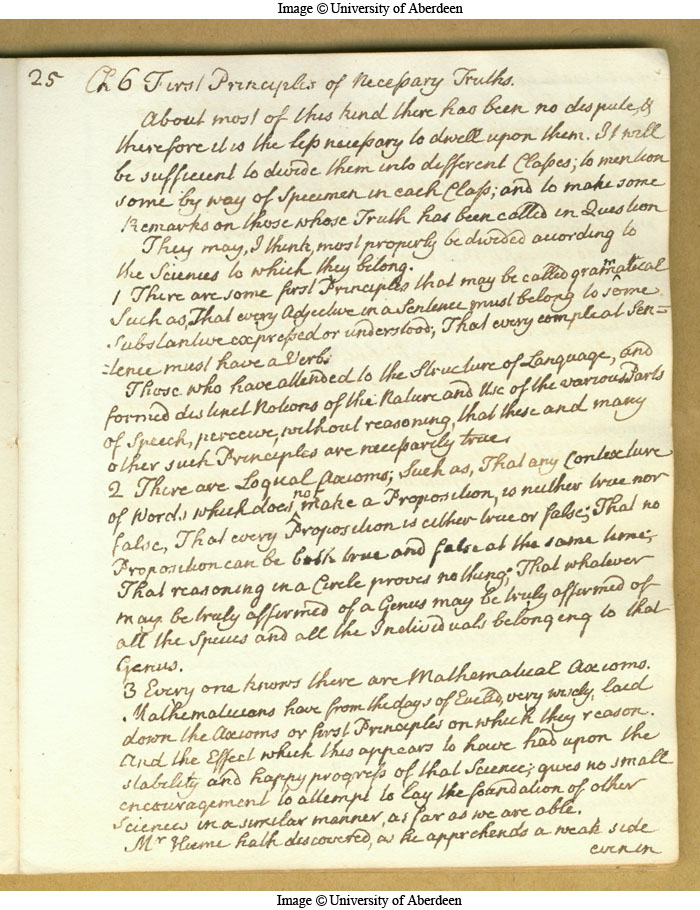 Image © University of Aberdeen
25 Ch 6 First Principles of Necessary Truths.
About most of this kind there has been no dispute, &
therefore it is the less necessary to dwell upon them. It will
be sufficient to divide them into different Classes; to mention
some by way of Specimen in each Class; and to make some
Remarks on those whose Truth has been called in Question
They may, I think, most properly be divided according to
the Sciences to which they belong.
1 There are some first Principles that may be called gramatical
Such as, That every Adjective in a Sentence must belong to some
Substantive expressed or understood; That every compleat Sen=
=tence must have a Verb.
Those who have attended to the Structure of Language, and
formed distinct Notions of the Nature and Use of the various Parts
of Speech, perceive, without reasoning, that these and many
other such Principles are necessarily true.
2 There are Logical Axioms; Such as, That any Contexture
of Words which does not make a Proposition, is neither true nor
false, That every Proposition is either true or false; That no
Proposition can be both true and false at the same time;
That reasoning in a Circle proves nothing; That whatever
may be truly affirmed of a Genus may be truly affirmed of
all the Species and all the Individuals belonging to that
Genus.
3 Every one knows there are Mathematical Axioms.
Mathematicians have from the days of Euclid, very wisely, laid
down the Axioms or first Principles on which they reason.
And the Effect which this appears to have had upon the
stability and happy progress of that Science; gives no small
encouragement to attempt to lay the foundation of other
Sciences in a similar manner, as far as we are able.
Mr Hume hath discovered, as he apprehends a weak side
even in
Image © University of Aberdeen